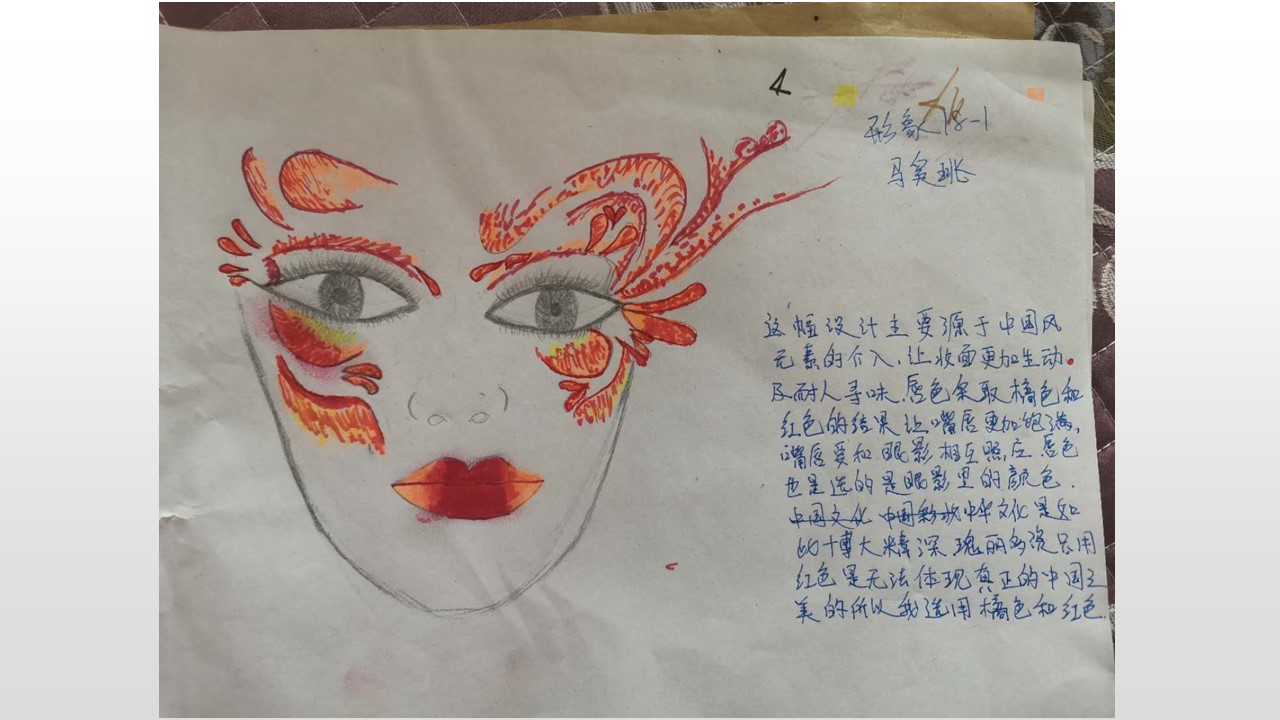 形象18-1
马奕珧
这幅设计主要源于中国风
元素的介入,让妆面更加生动。
及耐人寻味.唇色采取橘色和
红色的结果让嘴唇更加饱满,
嘴唇要和眼影相互照应唇色
也是选的是眼影里的颜色.
中国文化 中国彩妆中华文化是如
此博大精深瑰丽多姿只用
红色是无法体现真正的中国之
美的所以我选用橘色和红色.